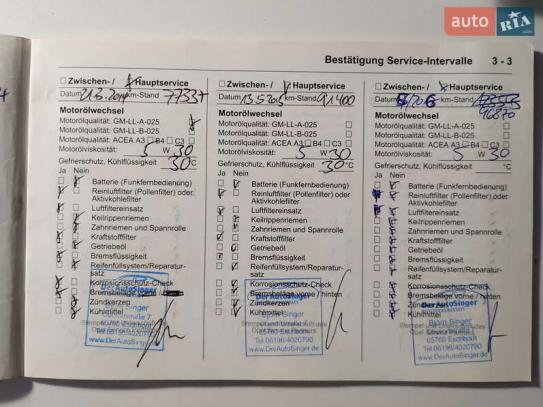 auto RIA
.com
Bestätigung Service-Intervalle 3 - 3
Zwischen- / Hauptservice
Datum km-Stand 77337
Motorölwechsel
Motorölqualität: GM-LL-A-025
GM-LL-B-025
Motorölqualität: ACEA A3 B4 C3
Motorölviskosität: 5 W 30
Gefrierschutz, Kühlflüssigkeit 30°C
Ja Nein
Batterie (Funkfernbedienung)
Reinluftfilter (Pollenfilter) oder
Aktivkohlefilter
Luftfiltereinsatz
Keilrippenriemen
Zahnriemen und Spannrolle
Kraftstofffilter
Getriebeöl
Bremsflüssigkeit
Reifenfüllsystem/Reparatur-
satz
Korrosionsschutz-Check
Bremsbeläge vorne /
Zündkerzen
Kühlmittel
DerAutoSinger
Singer
65760 Eschborn
Tel 06196/4020790
www.DerAutoSinger.de
Zwischen- / Hauptservice
Datum 13.5.2015 km-Stand 91400
Motorölwechsel
Motorölqualität: GM-LL-A-025
GM-LL-B-025
Motorölqualität: ACEA A3 B4 C3
Motorölviskosität: 5 W 30
Gefrierschutz, Kühlflüssigkeit 30°C
Ja Nein
Batterie (Funkfernbedienung)
Reinluftfilter (Pollenfilter) oder
Aktivkohlefilter
Luftfiltereinsatz
Keilrippenriemen
Zahnriemen und Spannrolle
Kraftstofffilter
Getriebeöl
Bremsflüssigkeit
Reifenfüllsystem/Reparatur-
satz
Korrosionsschutz-Check
Bremsbeläge vorne / hinten
Zündkerzen
Kühlmittel
DerAutoSinger
Singer
65760 Eschborn
Tel 06196/4020790
www.DerAutoSinger.de
Zwischen- / Hauptservice
Datum km-Stand
96870
Motorölwechsel
Motorölqualität: GM-LL-A-025
GM-LL-B-025
Motorölqualität: ACEA A3 B4 C3
Motorölviskosität: 5 W 30
Gefrierschutz, Kühlflüssigkeit °C
Ja Nein
Batterie (Funkfernbedienung)
Reinluftfilter (Pollenfilter) oder
Aktivkohlefilter
Luftfiltereinsatz
Keilrippenriemen
Zahnriemen und Spannrolle
Kraftstofffilter
Getriebeöl
Bremsflüssigkeit
Reifenfüllsystem/Reparatur-
satz
Korrosionsschutz-Check
Bremsbeläge vorne / hinten
Zündkerzen
Kühlmittel
DerAutoSinger
Singer
65760 Eschborn
Tel 06196/4020790
www.DerAutoSinger.de